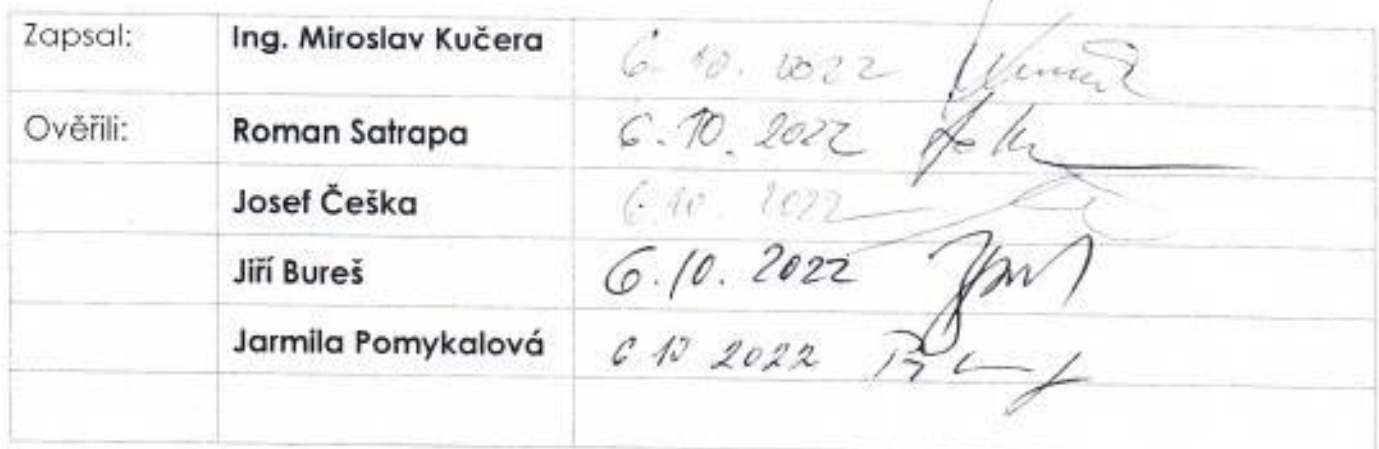 Zapsal: Ing. Miroslav Kučera 6. 10. 2022
Ověřili: Roman Satrapa 6. 10. 2022
Josef Češka 6. 10. 2022
Jiří Bureš 6. 10. 2022
Jarmila Pomykalová 6 10 2022